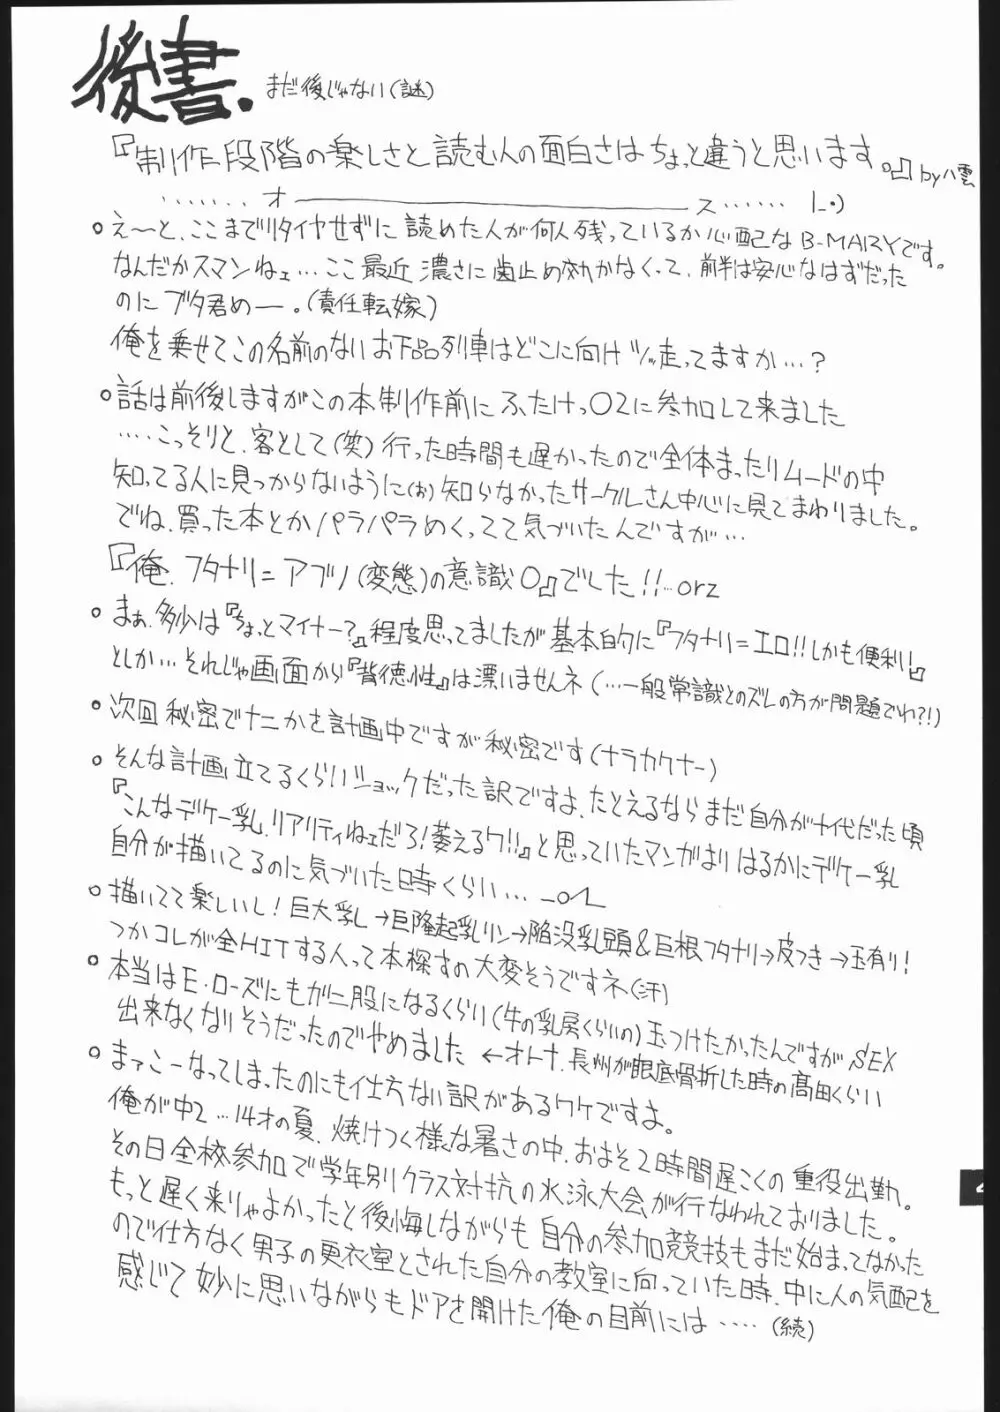 後書.
まだ後じゃない(謎)
『制作段階の楽しさと読む人の面白さはちょっと違うと思います。』by八雲
‥‥‥‥ オ―――――ス‥‥‥
。え〜と、ここまでリタイヤせずに読めた人が何人残っているか心配なB-MARYです。
なんだかスマンねェ…ここ最近濃さに歯止め効かなくって、前半は安心なはずだった
のにブタ君めー。(責任転嫁)
俺を乗せてこの名前のないお下品列車はどこに向けツッ走ってますか…?
。話は前後しますがこの本制作前にふたけっ02に参加して来ました
‥‥こっそりと、客として(笑)行った時間も遅かったので全体まったりムードの中
知ってる人に見っからないように(お)知らなかったサークルさん中心に見てまわりました。
でね、買った本とかパラパラめくってて気づいたんですが…
『俺、フタナリ=アブノ(変態)の意識0』でした!!…orz
。まぁ、多少は『ちょっとマイナー?』程度思ってましたが基本的に『フタナリ=エロ!!しかも便利!』
としか…それじゃ画面から『背徳性』は漂いませんネ(…一般常識とのズレの方が問題でわ?!)
。次回秘密でナニかを計画中ですが秘密です(ナラカクナー)
。そんな計画立てるくらいショックだった訳ですよ、たとえるならまだ自分が十代だった頃
『こんなデケー乳、リアリティねェだろ!萎えるワ!!』と思っていたマンガよりはるかにデケー乳
自分が描いてるのに気づいた時くらい…_o/L
。描いてて楽しいし!巨大乳し→巨隆起乳リン→陥没乳頭&巨根フタナリ→皮つき→玉有り!
つかコレが全HITする人って本探すの大変そうですネ(汗)
。本当はE.ローズにもガニ股になるくらい(牛の乳房くらいの)玉つけたかったんですがSEX
出来なくなりそうだったのでやめました ←オトナ、長州が眼底骨折した時の髙田くらい
。まっこーなってしまったのにも仕方ない訳があるワケですよ。
俺が中2…14才の夏、焼けつく様な暑さの中、およそ2時間遅こくの重役出勤。
その日全校参加で学年別クラス対抗の水泳大会が行なわれておりました。
もっと遅く来りゃよかったと後悔しながらも自分の参加競技もまだ始まってなかった
ので仕方なく男子の更衣室とされた自分の教室に向っていた時、中に人の気配を
感じて妙に思いながらもドアを開けた俺の目前には‥‥(続)